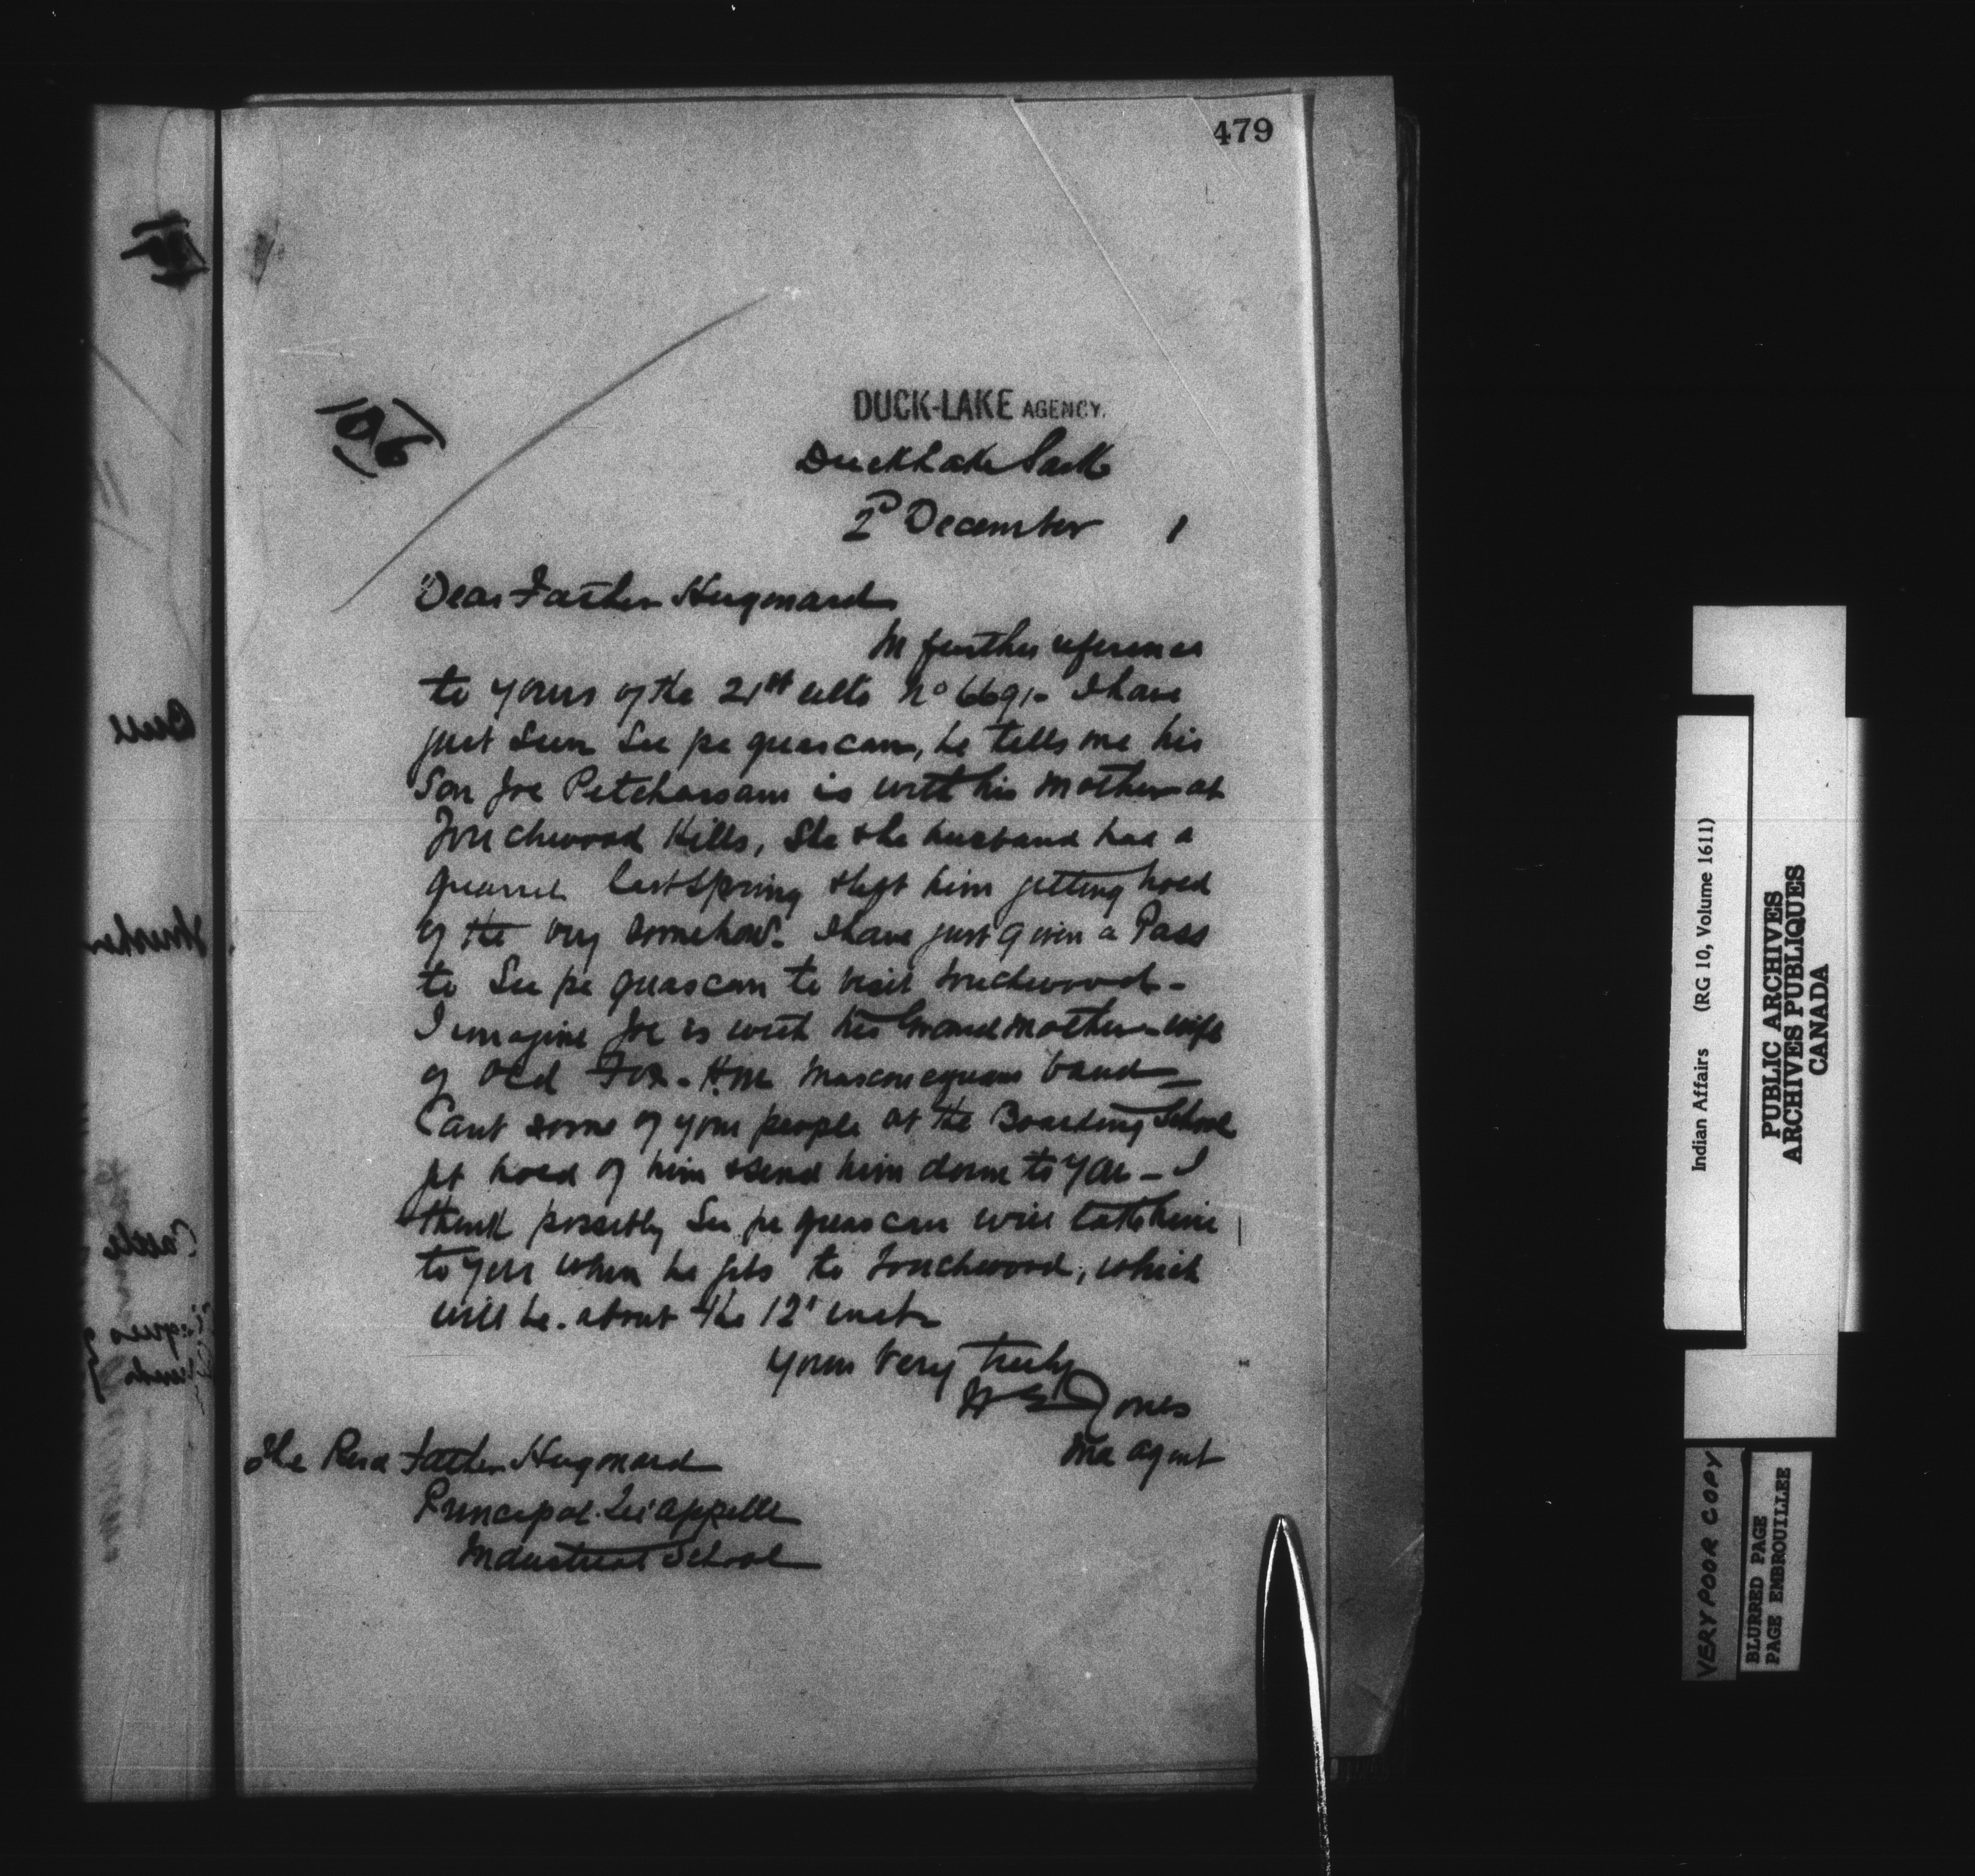 479
106
DUCK-LAKE AGENCY.
Duck Lake Sask
2d December 1
Dear Father Hugonard
In further reference
to yours of the 21st ulto No 6691- I have
just seen See pe quascan, he tells me his
Son Joe Petchassam is with his mother at
Touchwood Hills, She & he husband had a
quarrel last Spring & left him getting hold
of the boy somehow. I have just given a Pass
to See pe quascan to visit Touchwood-
I imagine Joe is with his Grand mother wife
of Old Fox. band
Cant some of your people at the Boarding School
get hold of him & send him down to you - I
think possibly See pe quascan will take him
to you when he gets to Touchwood, which
will be about the 12t inst
Yours Very Truly
Jones
Ind Agent
The Revd Father Hugonard
Principal Qu'appelle
Industrial School
Bull
Cattle
Indian Affairs (RG 10, Volume 1611)
PUBLIC ARCHIVES
ARCHIVES PUBLIQUES
CANADA
VERY POOR COPY
BLURRED PAGE
PAGE EMBROUILLEE